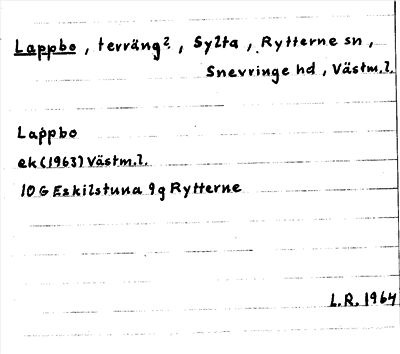 Lappbo, terräng?, Sylta, Rytterne sn,
Snevringe hd, Västm.l.
Lappbo
ek (1963) Västm.l.
10G Eskilstuna 9g Rytterne
L.R. 1964